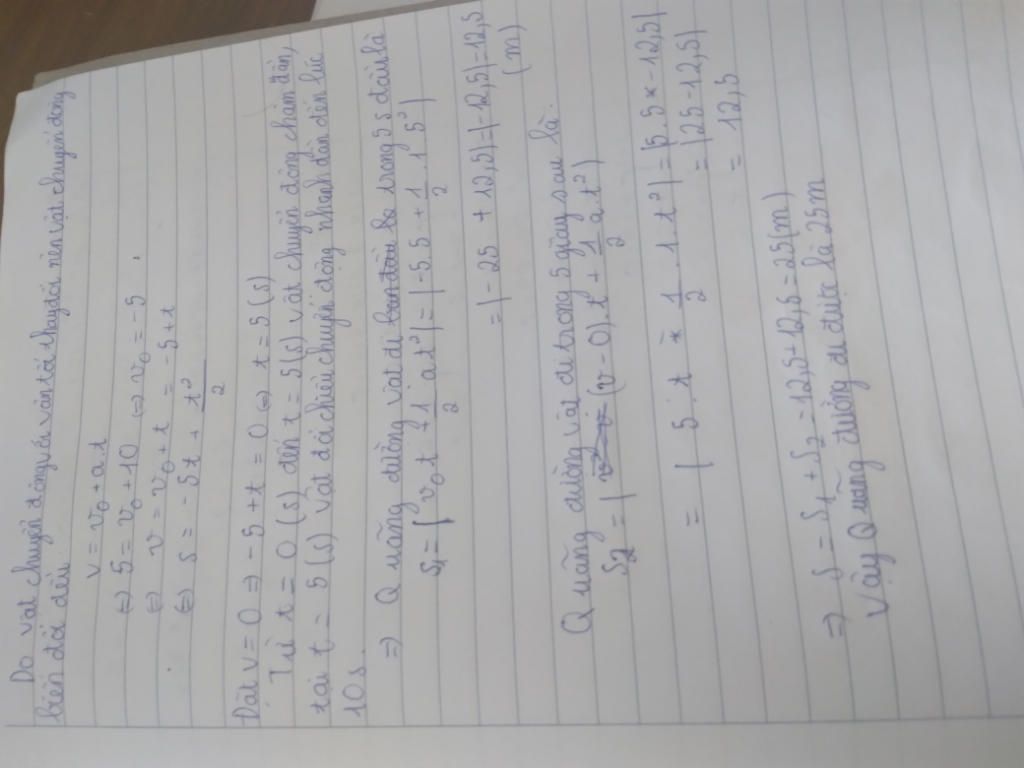 Do vật chuyển động với vận tốc thay đổi nên vật chuyển động
biến đổi đều.
v = v₀ + at
(=) 5 = v₀ + 10 (=) v₀ = -5
(=) v = v₀ + t = -5 + t
(=) s = -5t + t²/2
Đặt v = 0 => -5 + t = 0 (=) t = 5 (s)
Từ t = 0 (s) đến t = 5 (s) vật chuyển động chậm dần,
tại t = 5 (s) vật đổi chiều chuyển động nhanh dần đến lúc
10s.
=> Quãng đường vật đi trong 5s đầu là
S₁ = |v₀t + 1/2 at²| = |-5.5 + 1/2 . 1 . 5²|
= |-25 + 12,5| = |-12,5| = 12,5
(m)
Quãng đường vật đi trong 5 giây sau là:
S₂ = |(v - 0).t + 1/2 a.t²)
= | 5 . t - 1/2 . 1 . t²| = |5.5 - 12,5|
= |25 - 12,5|
= 12,5
=> S = S₁ + S₂ = 12,5 + 12,5 = 25 (m)
Vậy Quãng đường đi được là 25m